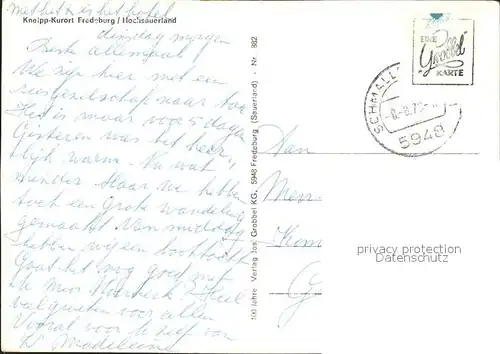 met het x is het hotel
Kneipp-Kurort Fredeburg / Hochsauerland
dinsdag morgen
Beste allemaal
We zijn hier met een
reisgezelschap naar toe
Het is maar voor 5 dagen
Gisteren was het heer
lijk warm. Nu wat
minder Maar we hebben
toch een grote wandeling
gemaakt Van middag
hebben wij een boottocht
Gaat het nog goed met
de Veel
velgroeten voor allen
Vooral voor U zelf van
Madeleine
100 Jahre Verlag Jos. Grobbel KG, 5948 Fredeburg (Sauerland) - Nr. 882
EINE
Grobbel
KARTE
SCHMALL
-8.-8.7
5948
Aan
privacy protection
Datenschutz